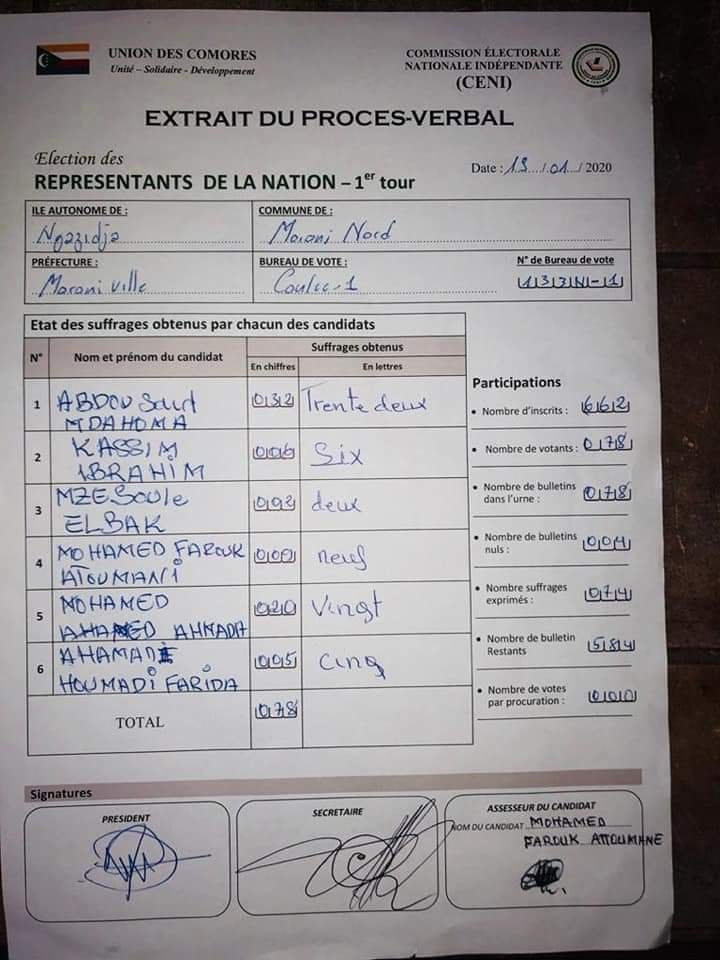 UNION DES COMORES
Unité – Solidaire - Développement
COMMISSION ÉLECTORALE
NATIONALE INDÉPENDANTE
(CENI)
EXTRAIT DU PROCES-VERBAL
Election des
REPRESENTANTS DE LA NATION – 1er tour
Date : 19/01/2020
ILE AUTONOME DE :
Ngazidja
COMMUNE DE :
Moroni Nord
PRÉFECTURE :
Moroni ville
BUREAU DE VOTE :
Coulée-1
N° de Bureau de vote
133N1-1
Etat des suffrages obtenus par chacun des candidats
N° Nom et prénom du candidat Suffrages obtenus
En chiffres En lettres
1 ABDOU Said MDAHOMA 032 Trente deux
2 KASSIM IBRAHIM 006 Six
3 MZE Soule ELBAK 002 deux
4 MOHAMED FAROUK ATOUMANI 009 neuf
5 MOHAMED AHAMED AHMADA 020 Vingt
6 AHAMADI HOUMADI FARIDA 005 Cinq
TOTAL 078
Participations
Nombre d'inscrits : 662
Nombre de votants : 078
Nombre de bulletins dans l'urne : 078
Nombre de bulletins nuls : 004
Nombre suffrages exprimés : 074
Nombre de bulletin Restants 584
Nombre de votes par procuration : 000
Signatures
PRESIDENT
SECRETAIRE
ASSESSEUR DU CANDIDAT
NOM DU CANDIDAT MOHAMED
FAROUK ATTOUMANE